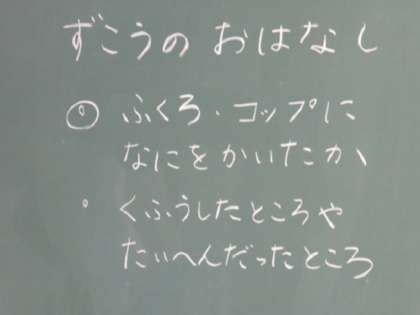 ずこうの おはなし
◎ ふくろ・コップに
なにをかいたか、
。くふうしたところや
たいへんだったところ